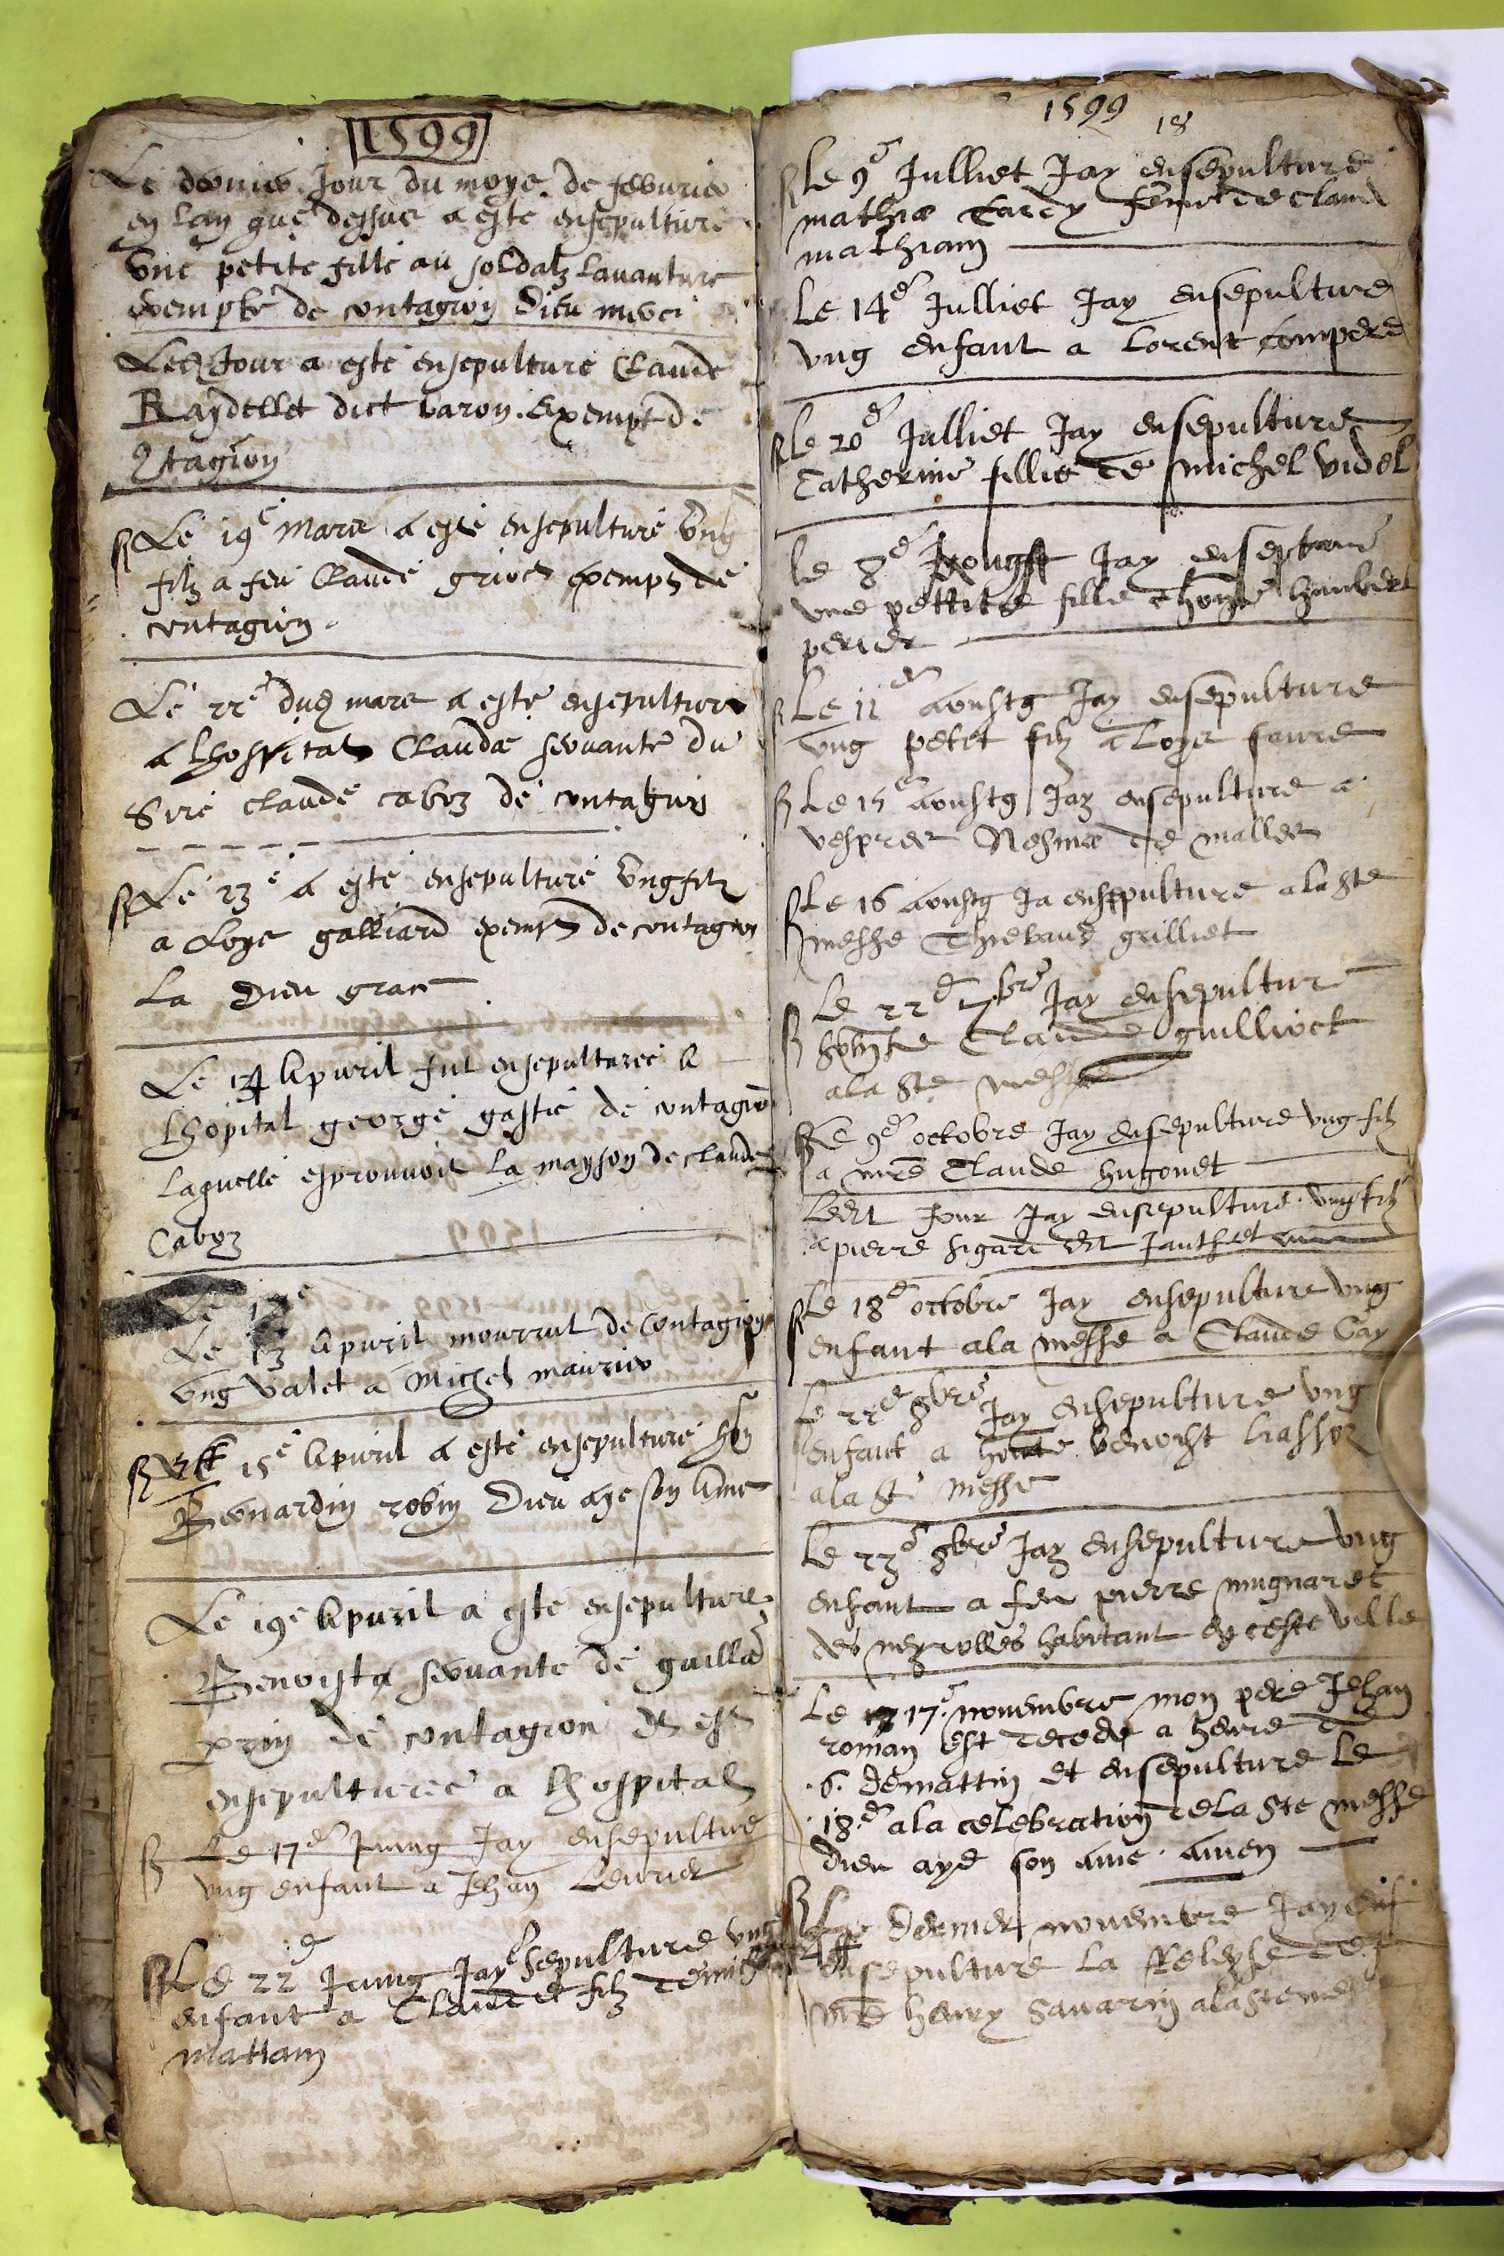 1599
Le dernier Jour du moys de febvrier
en lan que dessus a este ensepulture
Une petite fille au soldatz lavanture
exempte de contagion Dieu merci
Led Jour a este ensepulture Claude
Raydellet dict baron. Exempt de
9tagion
Le 19e Mars a este ensepulture Ung
filz a feu Claude exempt de
contagion.
Le 22e dud mars a este ensepulture
a lhospital Clauda servante du
Sire claude caboz de contagion
Le 23e a este ensepulture Ung filz
a Loys galliard exempt de contagion
La Dieu grace
Le 14 Apvril fut ensepulturee A
Lhopital george gastie de contagion
Laquelle esprouvoit la mayson de claude
Caboz
Le 12e
Le 13 Apvril mourrut de Contagion
Ung valet a Michel maurier
Le 15e Apvril a este ensepulture hon
Bernardin robin Dieu aye son Ame
Le 19e Apvril a este ensepulture
Benoista servante de guilla
prin de contagion Et est
ensepulturee a Lhospital
Le 17e Juing Jay ensepulture
ung enfant a Jehan
Le 22e Juing Jay ensepulture ung
enfant a Claude filz de
mattam
1599
18
Le 9e Julliet Jay ensepulture
mathia tardy feme de Claud
mathiam
Le 14e Julliet Jay ensepulture
ung enfant a Lorent compere
Le 20e Julliet Jay ensepulture
Catherine fillie de Michel videl
le 8e Jay
une pettite fille dhone humbert
perier
Le 11e aoustg Jay ensepulture
ung petet filz a Loys favre
Le 15e aoustg Jay ensepulture a
vespres Nesme de malles
Le 16 aoustg Ja ensepulture a la Ste
messe Thievaud grilliet
Le 22e 7bre Jay ensepulture
Claude guilliot
a la Ste messe
Le 9e octobre Jay ensepulture ung filz
a mre Claude hugonet
Ledt Jour Jay ensepulture ung filz
a pierre figare dt Janthet
Le 18e octobre Jay ensepulture ung
enfant a la messe a Claude Cay
Le 22e 8bre Jay ensepulture ung
enfant a honte benoist
a la Ste Messe
Le 23e 8bre Jay ensepulture ung
enfant a feu pierre mugnaret
des neyrolles habitant en ceste ville
Le 17e novembre mon pere Jehan
roman est decede a heure de
.6. de mattin et ensepulture le
.18.e a la celebration de la Ste messe
dieu aye son ame . amen
Le dernier novembre Jay ens
ensepulture la de
mre henry Savarin a la Ste mes